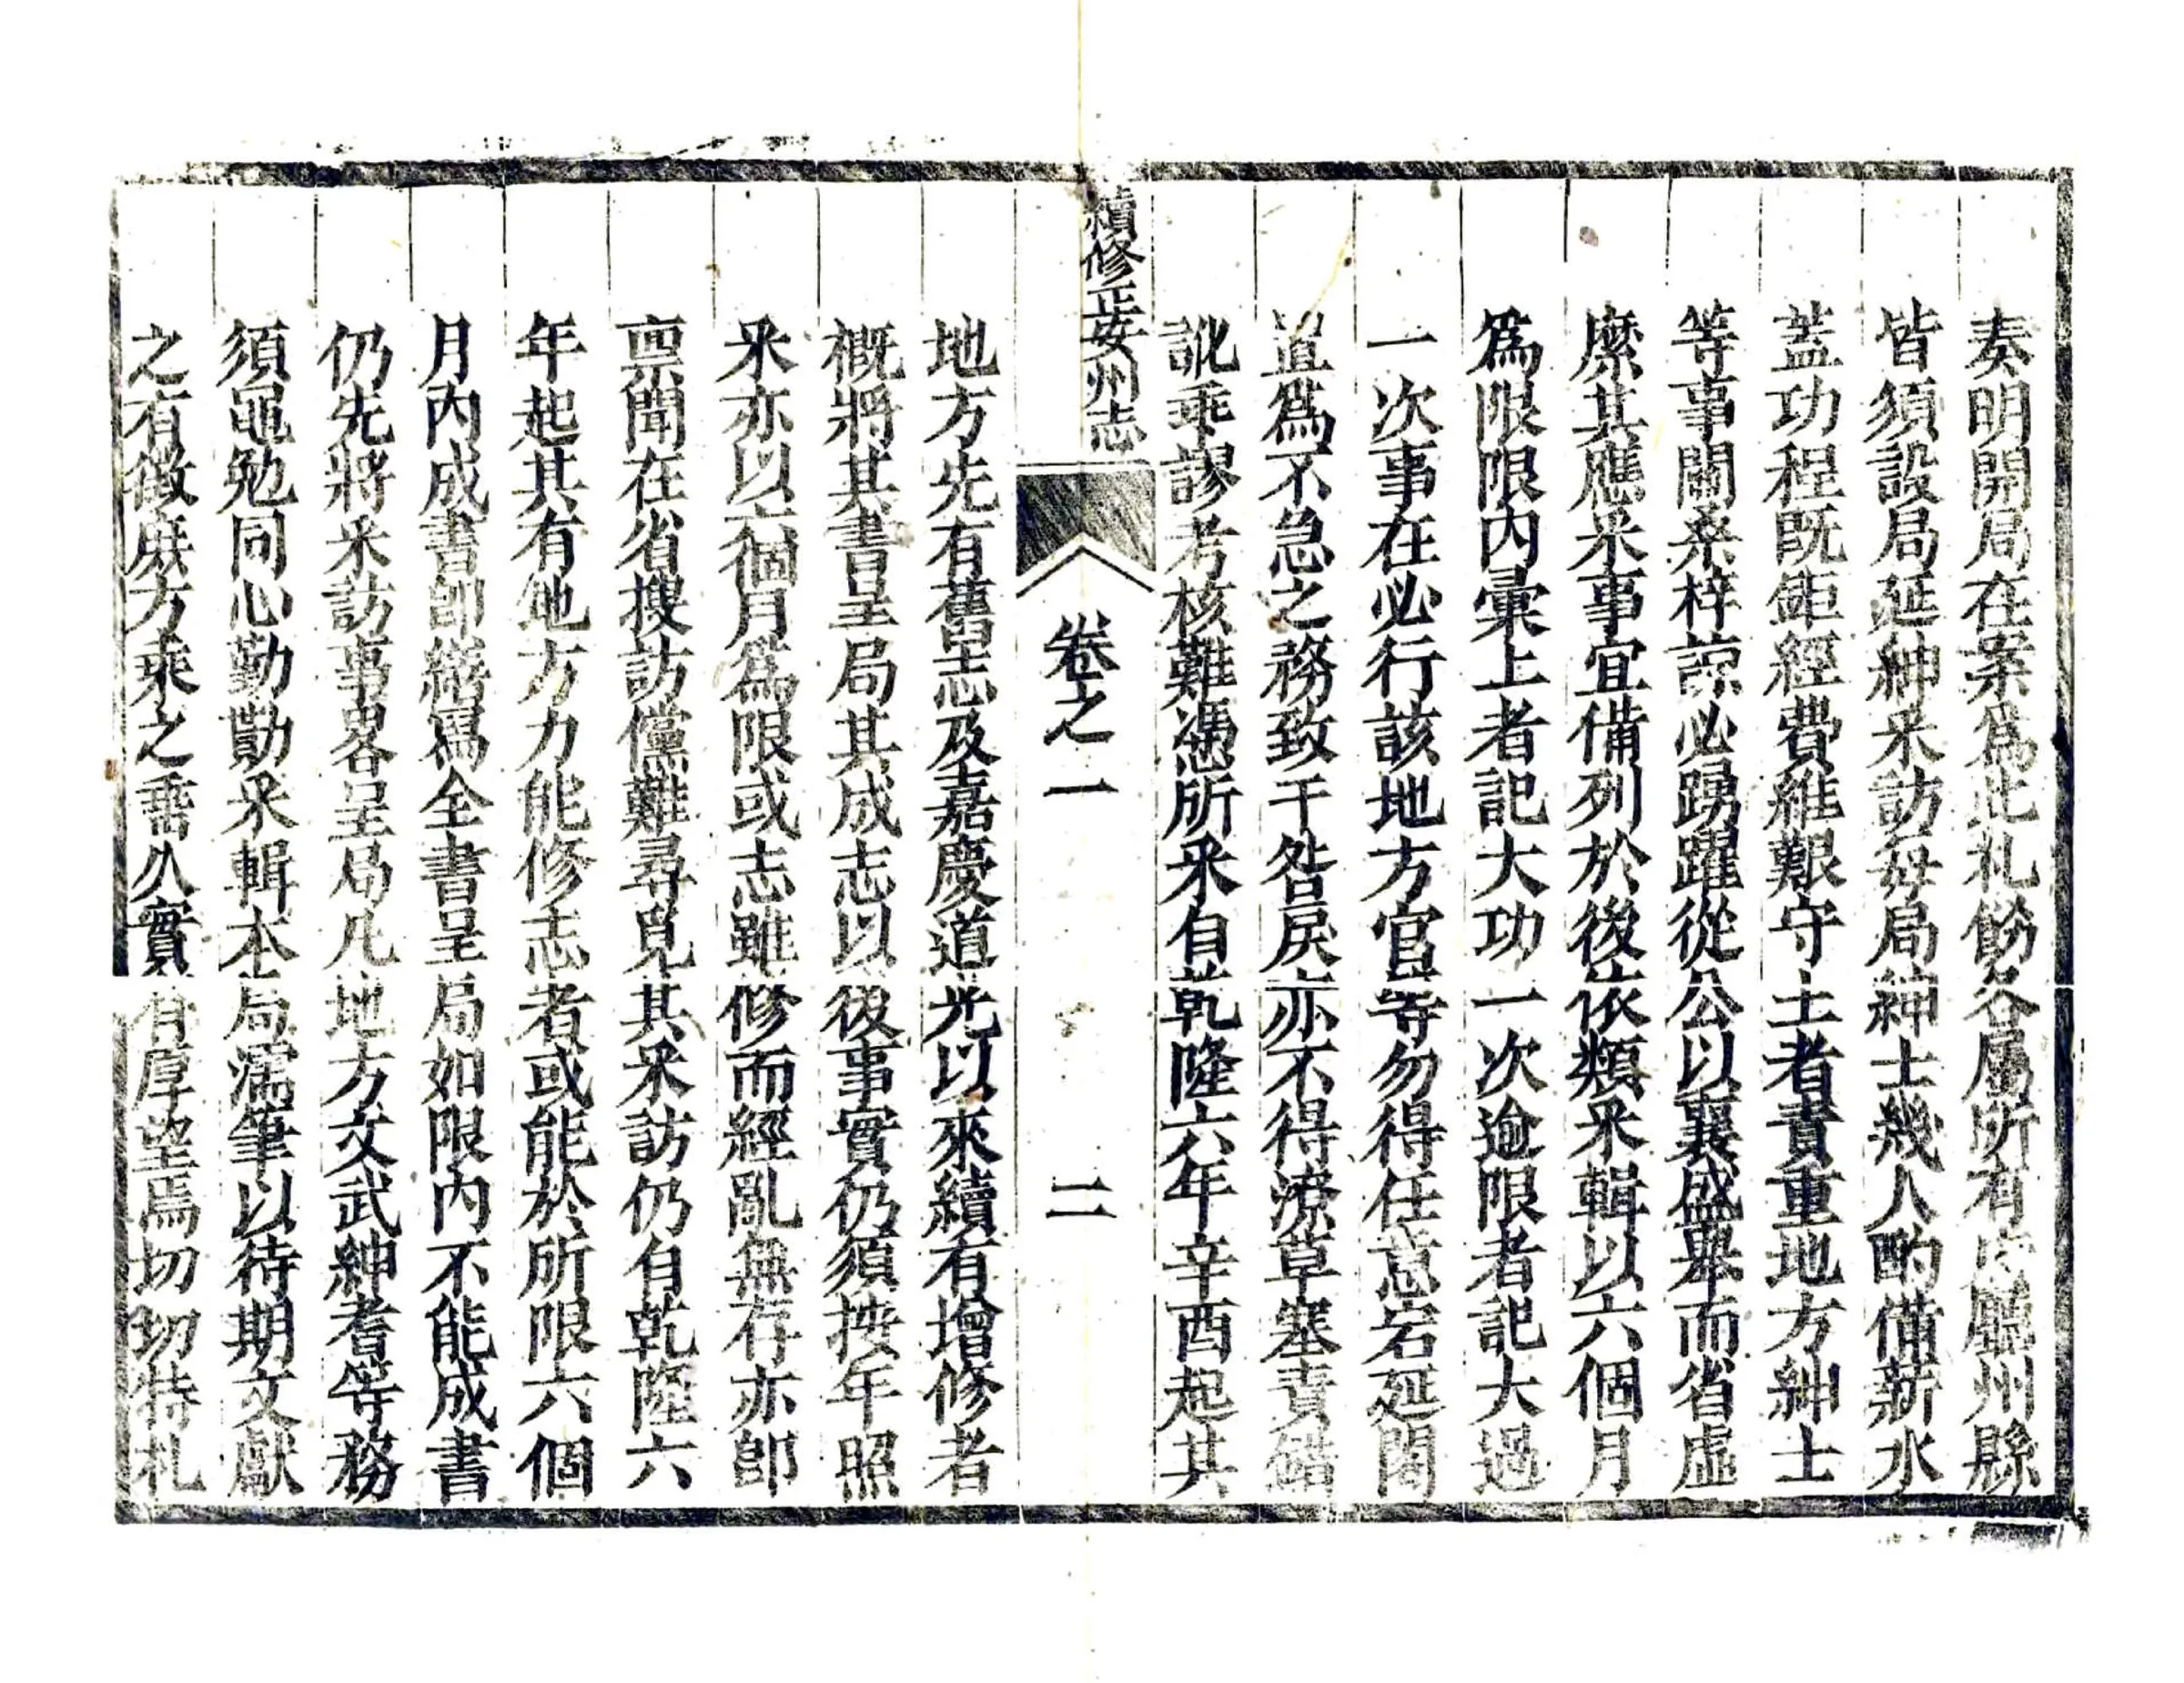 奏明開局在案爲此札飭各屬所有府廳州縣
皆須設局延紳采訪每局紳士幾人酌備薪水
蓋功程旣鉅經費維艱守土者責重地方紳士
等事關桑梓諒必踴躍從公以襄盛舉而省虛
縻其應采事宜備列於後依類采輯以六個月
爲限限內彙上者記大功一次逾限者記大過
一次事在必行該地方官等勿得任意宕延閣
置爲不急之務致干咎戾亦不得潦草塞責錯
訛乖謬考核難憑所采自乾隆六年辛酉起其
續修正安州志
卷之一
二
地方先有舊志及嘉慶道光以來續有增修者
槪將其書呈局其成志以後事實仍須按年照
采亦以六個月爲限或志雖修而經亂無存亦卽
稟聞在省搜訪儻難尋覓其采訪仍自乾隆六
年起其有地方力能修志者或能於所限六個
月內成書卽繕寫全書呈局如限內不能成書
仍先將采訪事畧呈局凡地方文武紳耆等務
須黽勉同心勤勷采輯本局濡筆以待期文獻
之有徵庶方乘之垂久實有厚望焉切切特札